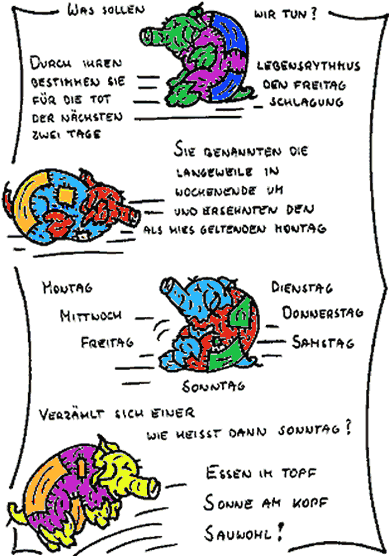 Was sollen wir tun?
Durch ihren Lebensrythmus
bestimmen sie den Freitag
für die Tot schlagung
der nächsten
zwei Tage
Sie benannten die
Langeweile in
Wochenende um
und ersehnten den
als mies geltenden Montag
Montag Dienstag
Mittwoch Donnerstag
Freitag Samstag
Sonntag
Verzählt sich einer
wie heisst dann Sonntag?
Essen im Topf
Sonne am Kopf
Sauwohl!